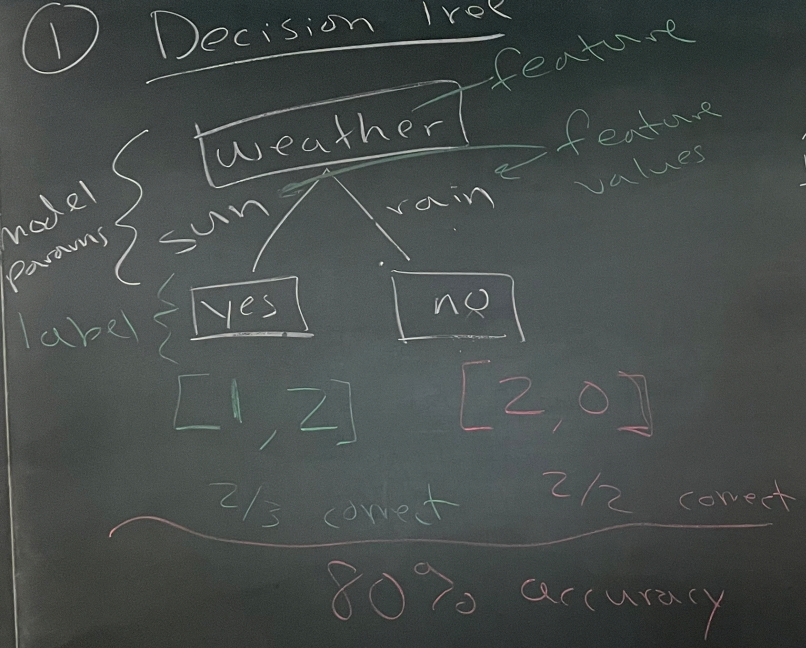 ① Decision Tree
feature
weather
feature
values
model
params
sun
rain
label
yes
no
[1, 2]
[2, 0]
2/3 correct
2/2 correct
80% accuracy